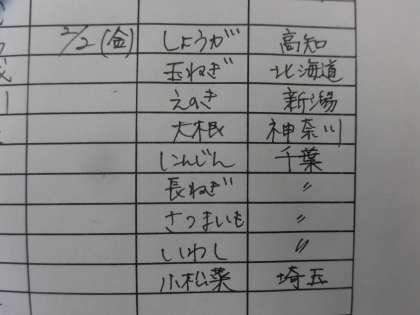 2/2(金) しょうが 高知
玉ねぎ 北海道
えのき 新潟
大根 神奈川
にんじん 千葉
長ねぎ 〃
さつまいも 〃
いわし 〃
小松菜 埼玉